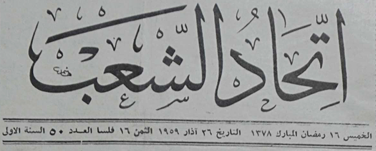 اتحاد الشعب
الخميس ١٦ رمضان المبارك ١٣٧٨ التاريخ ٢٦ آذار ١٩٥٩ الثمن ١٦ فلسا العدد ٥٠ السنة الاولى